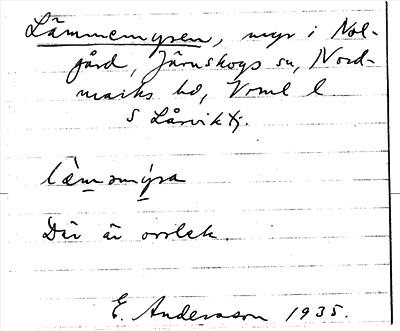 Lämmemyren, myr i Nol-
gård, Järnskogs sn, Nord-
marks hd, Vrml l.
S Lårvik tj.
læməmýra
Där är orrlek.
E. Andersson 1935.